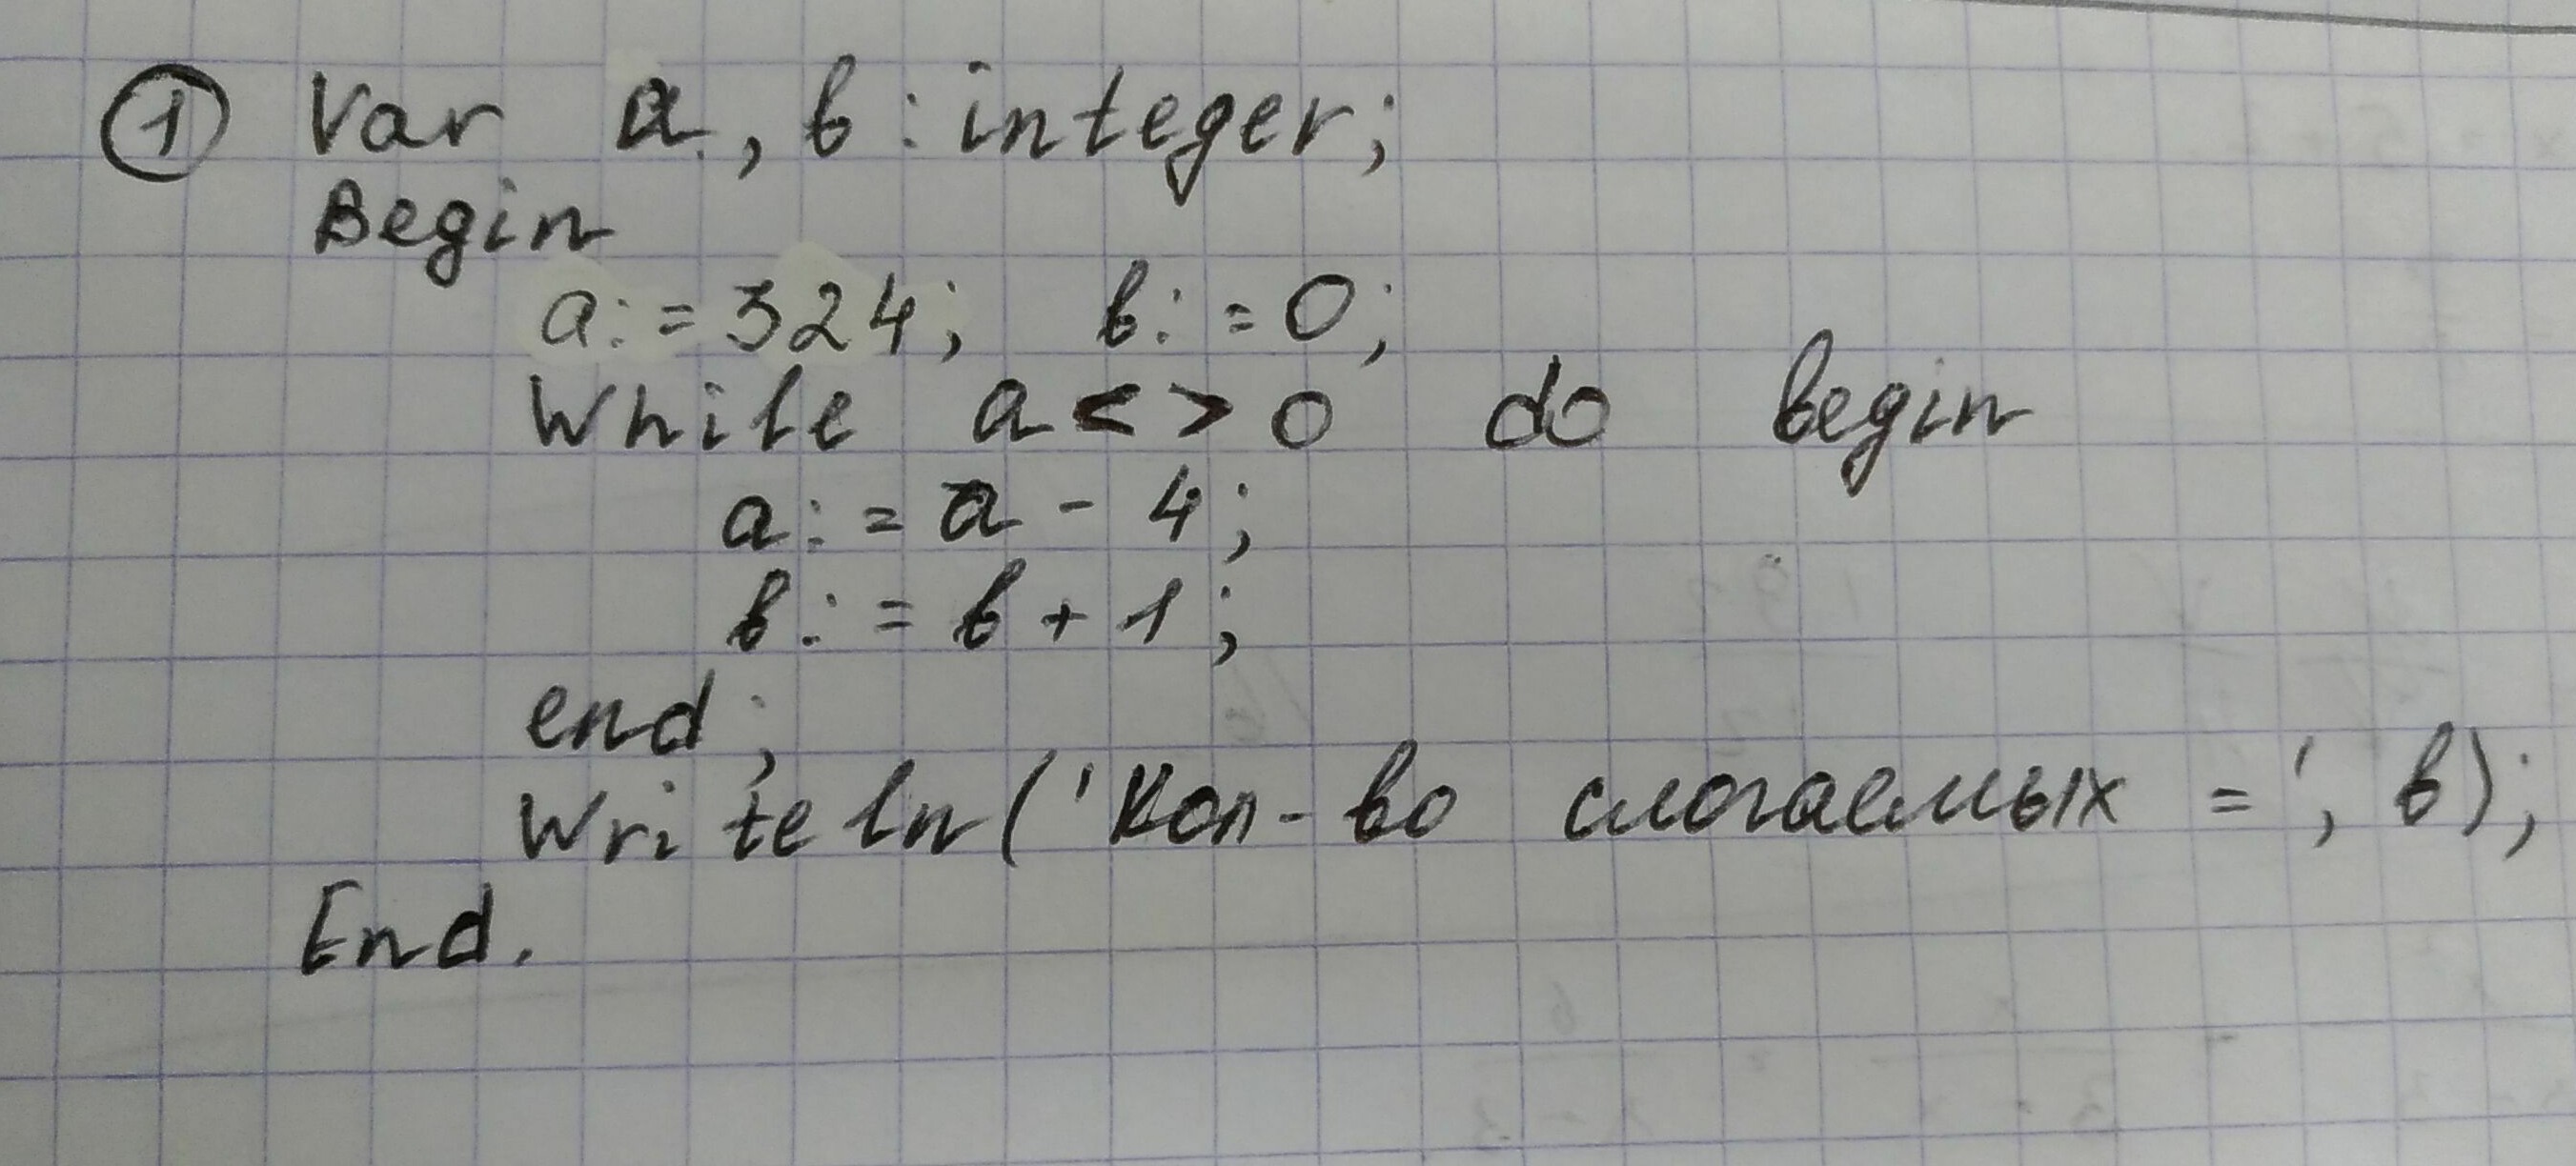 1 Var a, b: integer;
Begin
a:=324; b:=0;
While a<>0 do begin
a:=a-4;
b:=b+1;
end;
Writeln('Кол-во слогаемых =', b);
End.